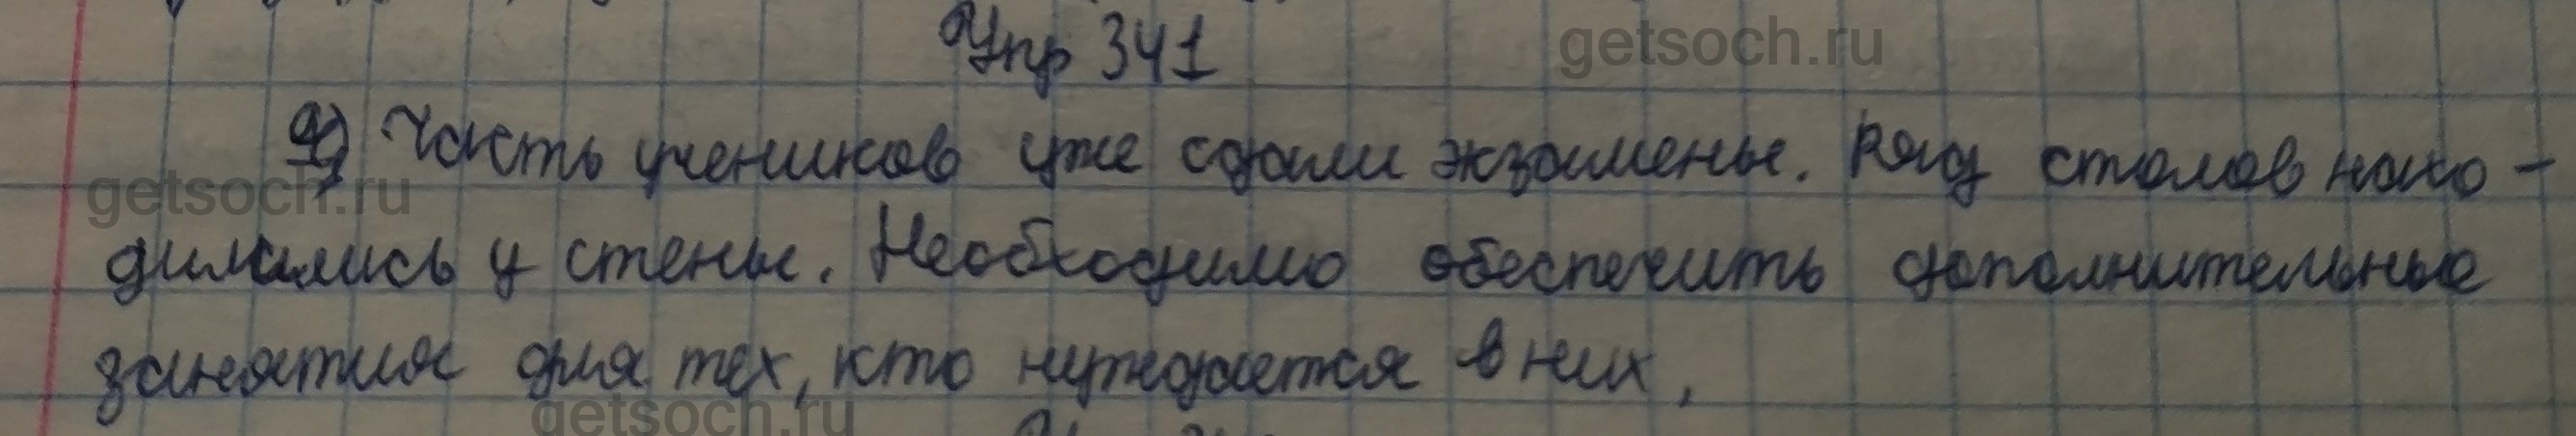 Упр 341
getsoch.ru
1) Часть учеников уже сдали экзамены. Ряд столов нахо-
getsoch.ru
дились у стены. Необходимо обеспечить дополнительные
занятия для тех, кто нуждается в них.
getsoch.ru